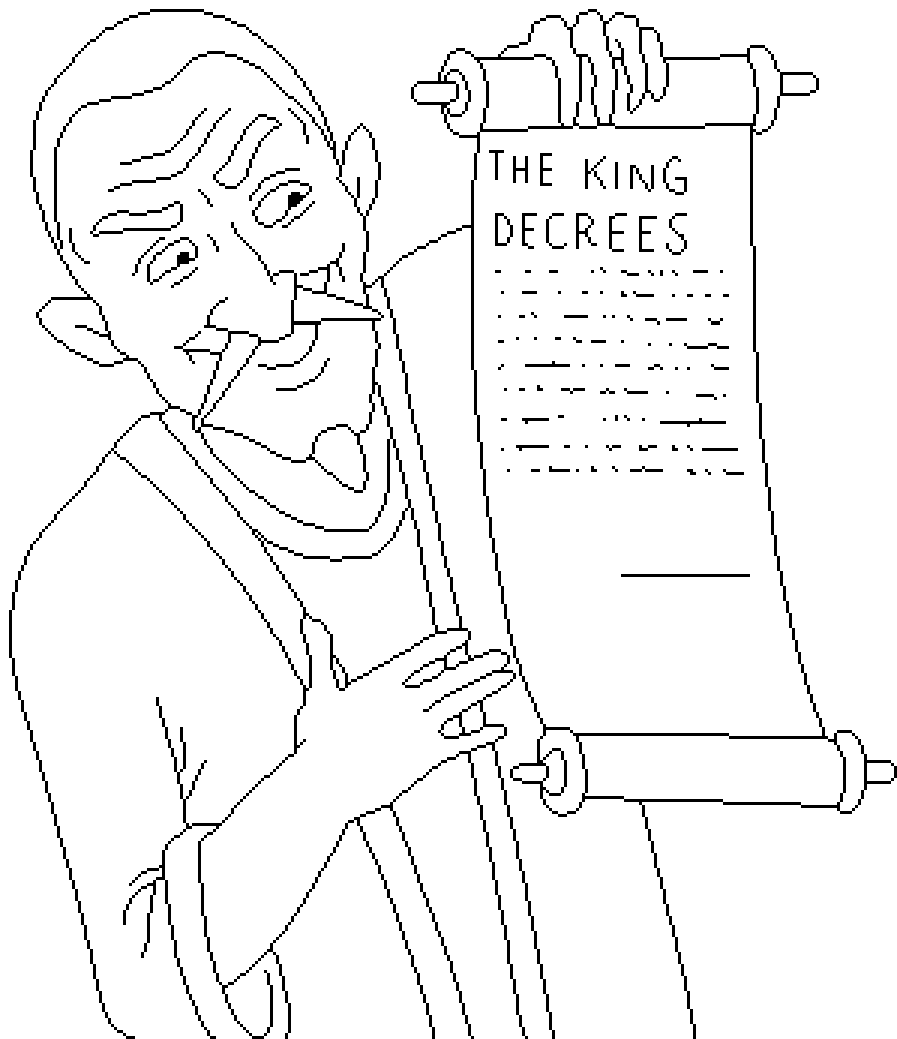 THE KING
DECREES